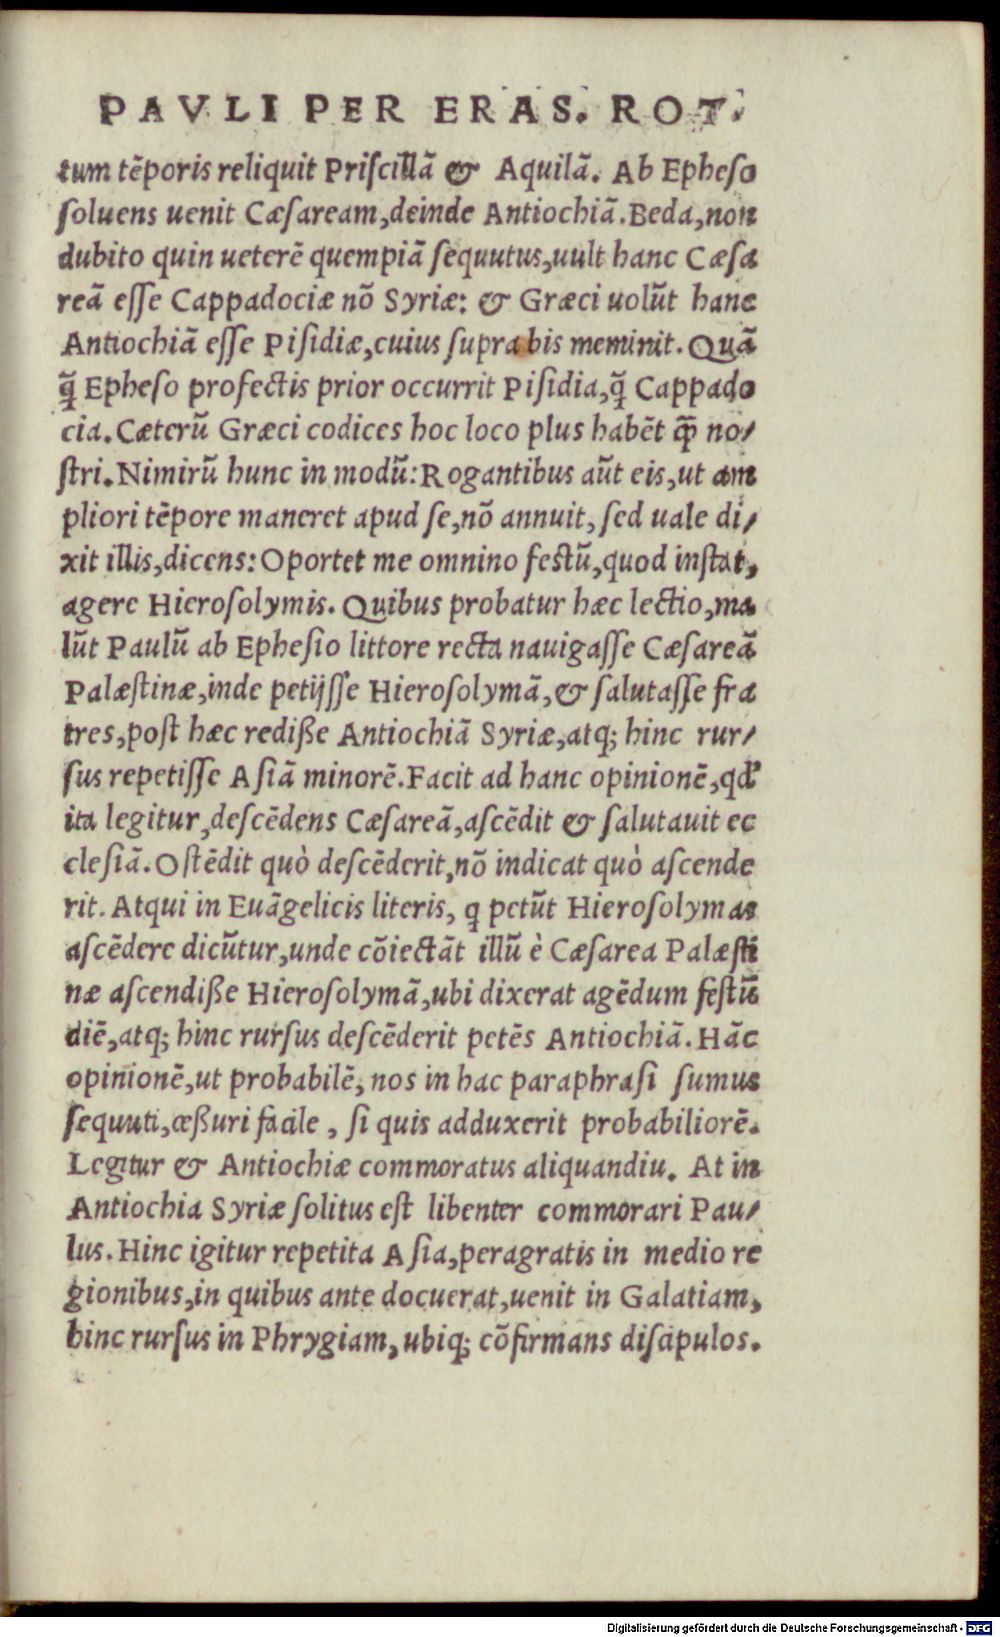 PAVLI PER ERAS. ROT.
tum tẽporis reliquit Priſcillã & Aquilã. Ab Epheſo
ſoluens uenit Cæſaream,deinde Antiochiã.Beda,non
dubito quin ueterẽ quempiã ſequutus,uult hanc Cæſa
reã eſſe Cappadociæ nõ Syriæ: & Græci uolũt hanc
Antiochiã eſſe Piſidiæ,cuius ſupra bis meminit. Quã
q̃ Epheſo profectis prior occurrit Piſidia,q̃ Cappado
cia. Cæterũ Græci codices hoc loco plus habẽt q̃ no⸗
ſtri. Nimirũ hunc in modũ: Rogantibus aũt eis,ut am
pliori tẽpore maneret apud ſe,nõ annuit, ſed uale di⸗
xit illis,dicens: Oportet me omnino feſtũ,quod inſtat,
agere Hieroſolymis. Quibus probatur hæc lectio,ma
lũt Paulũ ab Epheſio littore recta nauigaſſe Cæſareã
Palæſtinæ,inde petijſſe Hieroſolymã,& ſalutaſſe fra
tres,poſt hæc rediſſe Antiochiã Syriæ,atq; hinc rur⸗
ſus repetiſſe Aſiã minorẽ. Facit ad hanc opinionẽ,qđ
ita legitur,deſcẽdens Cæſareã,aſcẽdit & ſalutauit ec
cleſiã. Oſtẽdit quò deſcẽderit,nõ indicat quò aſcende
rit. Atqui in Euãgelicis literis, q petũt Hieroſolymas
aſcẽdere dicũtur,unde cõiectãt illũ è Cæſarea Palæſti
næ aſcendiße Hieroſolymã,ubi dixerat agẽdum feſtũ
diẽ,atq; hinc rurſus deſcẽderit petẽs Antiochiã. Hãc
opinionẽ,ut probabilẽ, nos in hac paraphraſi ſumus
ſequuti,ceßuri facile , ſi quis adduxerit probabiliorẽ.
Legitur & Antiochiæ commoratus aliquandiu. At in
Antiochia Syriæ ſolitus eſt libenter commorari Pau⸗
lus. Hinc igitur repetita Aſia,peragratis in medio re
gionibus,in quibus ante docuerat,uenit in Galatiam,
hinc rurſus in Phrygiam, ubiq; cõfirmans diſcipulos.
Digitalisierung gefördert durch die Deutsche Forschungsgemeinschaft - DFG